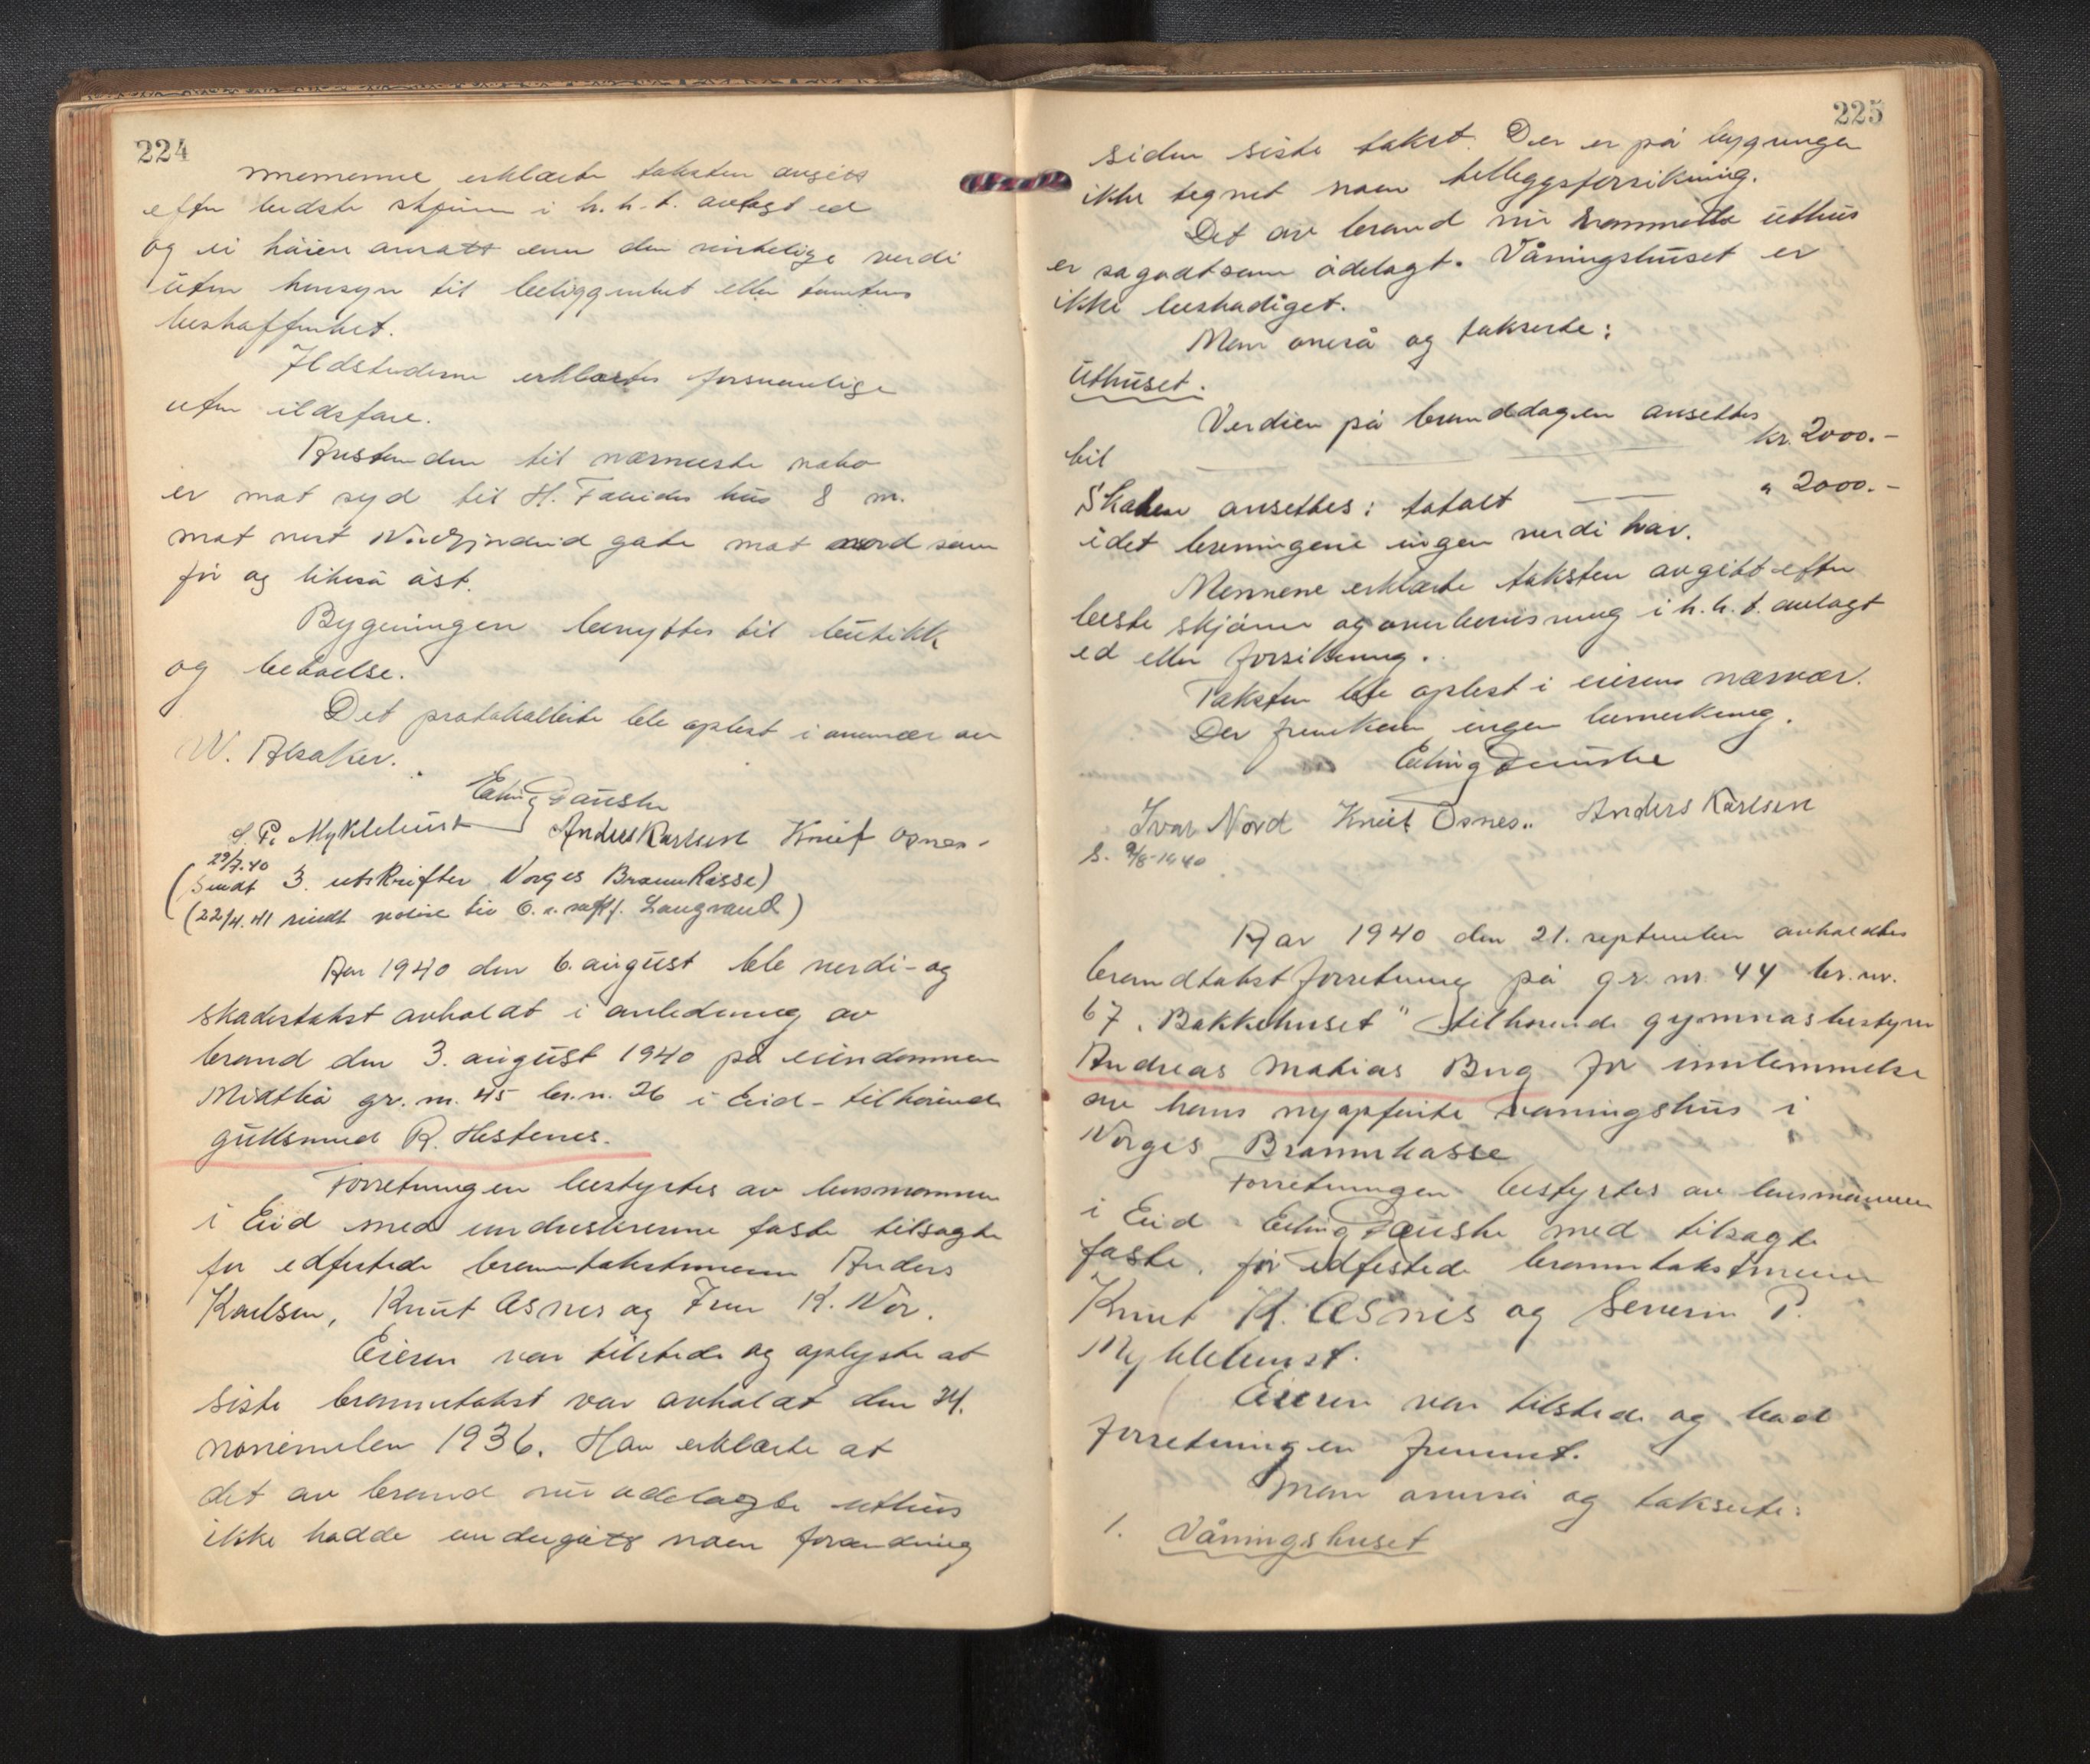 224
mennene erklærte taksten avgitt
efter bedste skjønn i h. h. t. avlagt ed
og ei høiere ansatt enn den virkelige verdi
uten hensyn til beliggenhet eller tomtens
beskaffenhet.
Ildstederne erklærtes forsvarlige
uten ildsfare.
Avstanden til nærmeste nabo
er mot syd til H. hus 8 m.
mot vest gate mot nord som
før og likeså øst.
Bygningen benyttes til butikk
og beboelse.
Det protokollerte ble oplest i overvær av
W. Alsaker.
Erling Dauske
S. P. Myklebust Anders Karlsen Knut Osnes.
29/7.40
(Sendt 3. utskrifter Norges Brannkasse)
(22/4.41 sendt til o.r.sakf. Langvand)
Aar 1940 den 6. august ble verdi- og
skadestakst avholdt i anledning av
brand den 3. august 1940 på eiendommen
Midtbø gr. nr. 45 br. n. 26 i Eid - tilhørende
gullsmed R. Hestenes.
Forretningen bestyrtes av lensmannen
i Eid med undertegnede faste tilsagte
før edfestede branntakstmenn Anders
Karlsen, Knut Osnes og Iver K. Nor.
Eieren var tilstede og oplyste at
siste branntakst var avholdt den 24.
november 1936. Han erklærte at
det av brand nu ødelagte uthus
ikke hadde undergått noen forandring
225
siden siste takst. Der er på bygningen
ikke tegnet noen tilleggsforsikring.
Det av brand nu rammede uthus
er sagodtsom ødelagt. Våningshuset er
ikke beskadiget.
Man overså og takserte:
Uthuset.
Verdien på branddagen ansettes
til kr. 2000.-
Skaden ansettes: totalt " 2000.-
idet levningene ingen verdi har.
Mennene erklærte taksten avgitt efter
beste skjønn og overbevisning i h. h. t. avlagt
ed eller forsikring.
Taksten ble oplest i eierens nærvær.
Der fremkom ingen bemerkning.
Erling Dauske
Ivar Nord Knut Osnes. Anders Karlsen
S. 9/8-1940
Aar 1940 den 21. september avholdtes
brandtakstforretning på gr. nr. 44 br. nr.
67 "Bakkehuset" tilhørende gymnasbestyrer
Andreas Matias Berg for innlemmelse
av hans nyopførte vaningshus i
Norges Brannkasse
Forretningen bestyrtes av lensmannen
i Eid Erling Dauske med tilsagte
faste, før edfestede branntakstmenn
Knut K. Osnes og Severin P.
Myklebust.
Eieren var tilstede og bad
forretningen fremmet.
Man overså og takserte:
1. Våningshuset